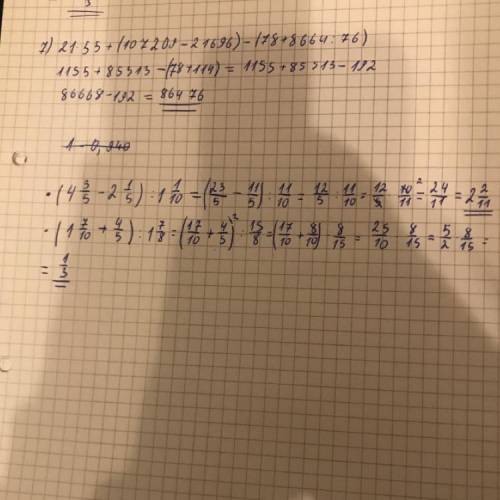 3
7) 21·55 + (107209 - 21696) - (78 + 8664 : 76)
1155 + 85513 - (78 + 114) = 1155 + 85513 - 192
86668 - 192 = 86476
1 - 0,940
• (4 3/5 - 2 1/5) : 1 1/10 = (23/5 - 11/5) : 11/10 = 12/5 : 11/10 = 12/5 · 10/11 = 24/11 = 2 2/11
• (1 7/10 + 4/5) : 1 7/8 = (17/10 + 4/5) : 15/8 = (17/10 + 8/10) · 8/15 = 25/10 · 8/15 = 5/2 · 8/15 =
= 1/3